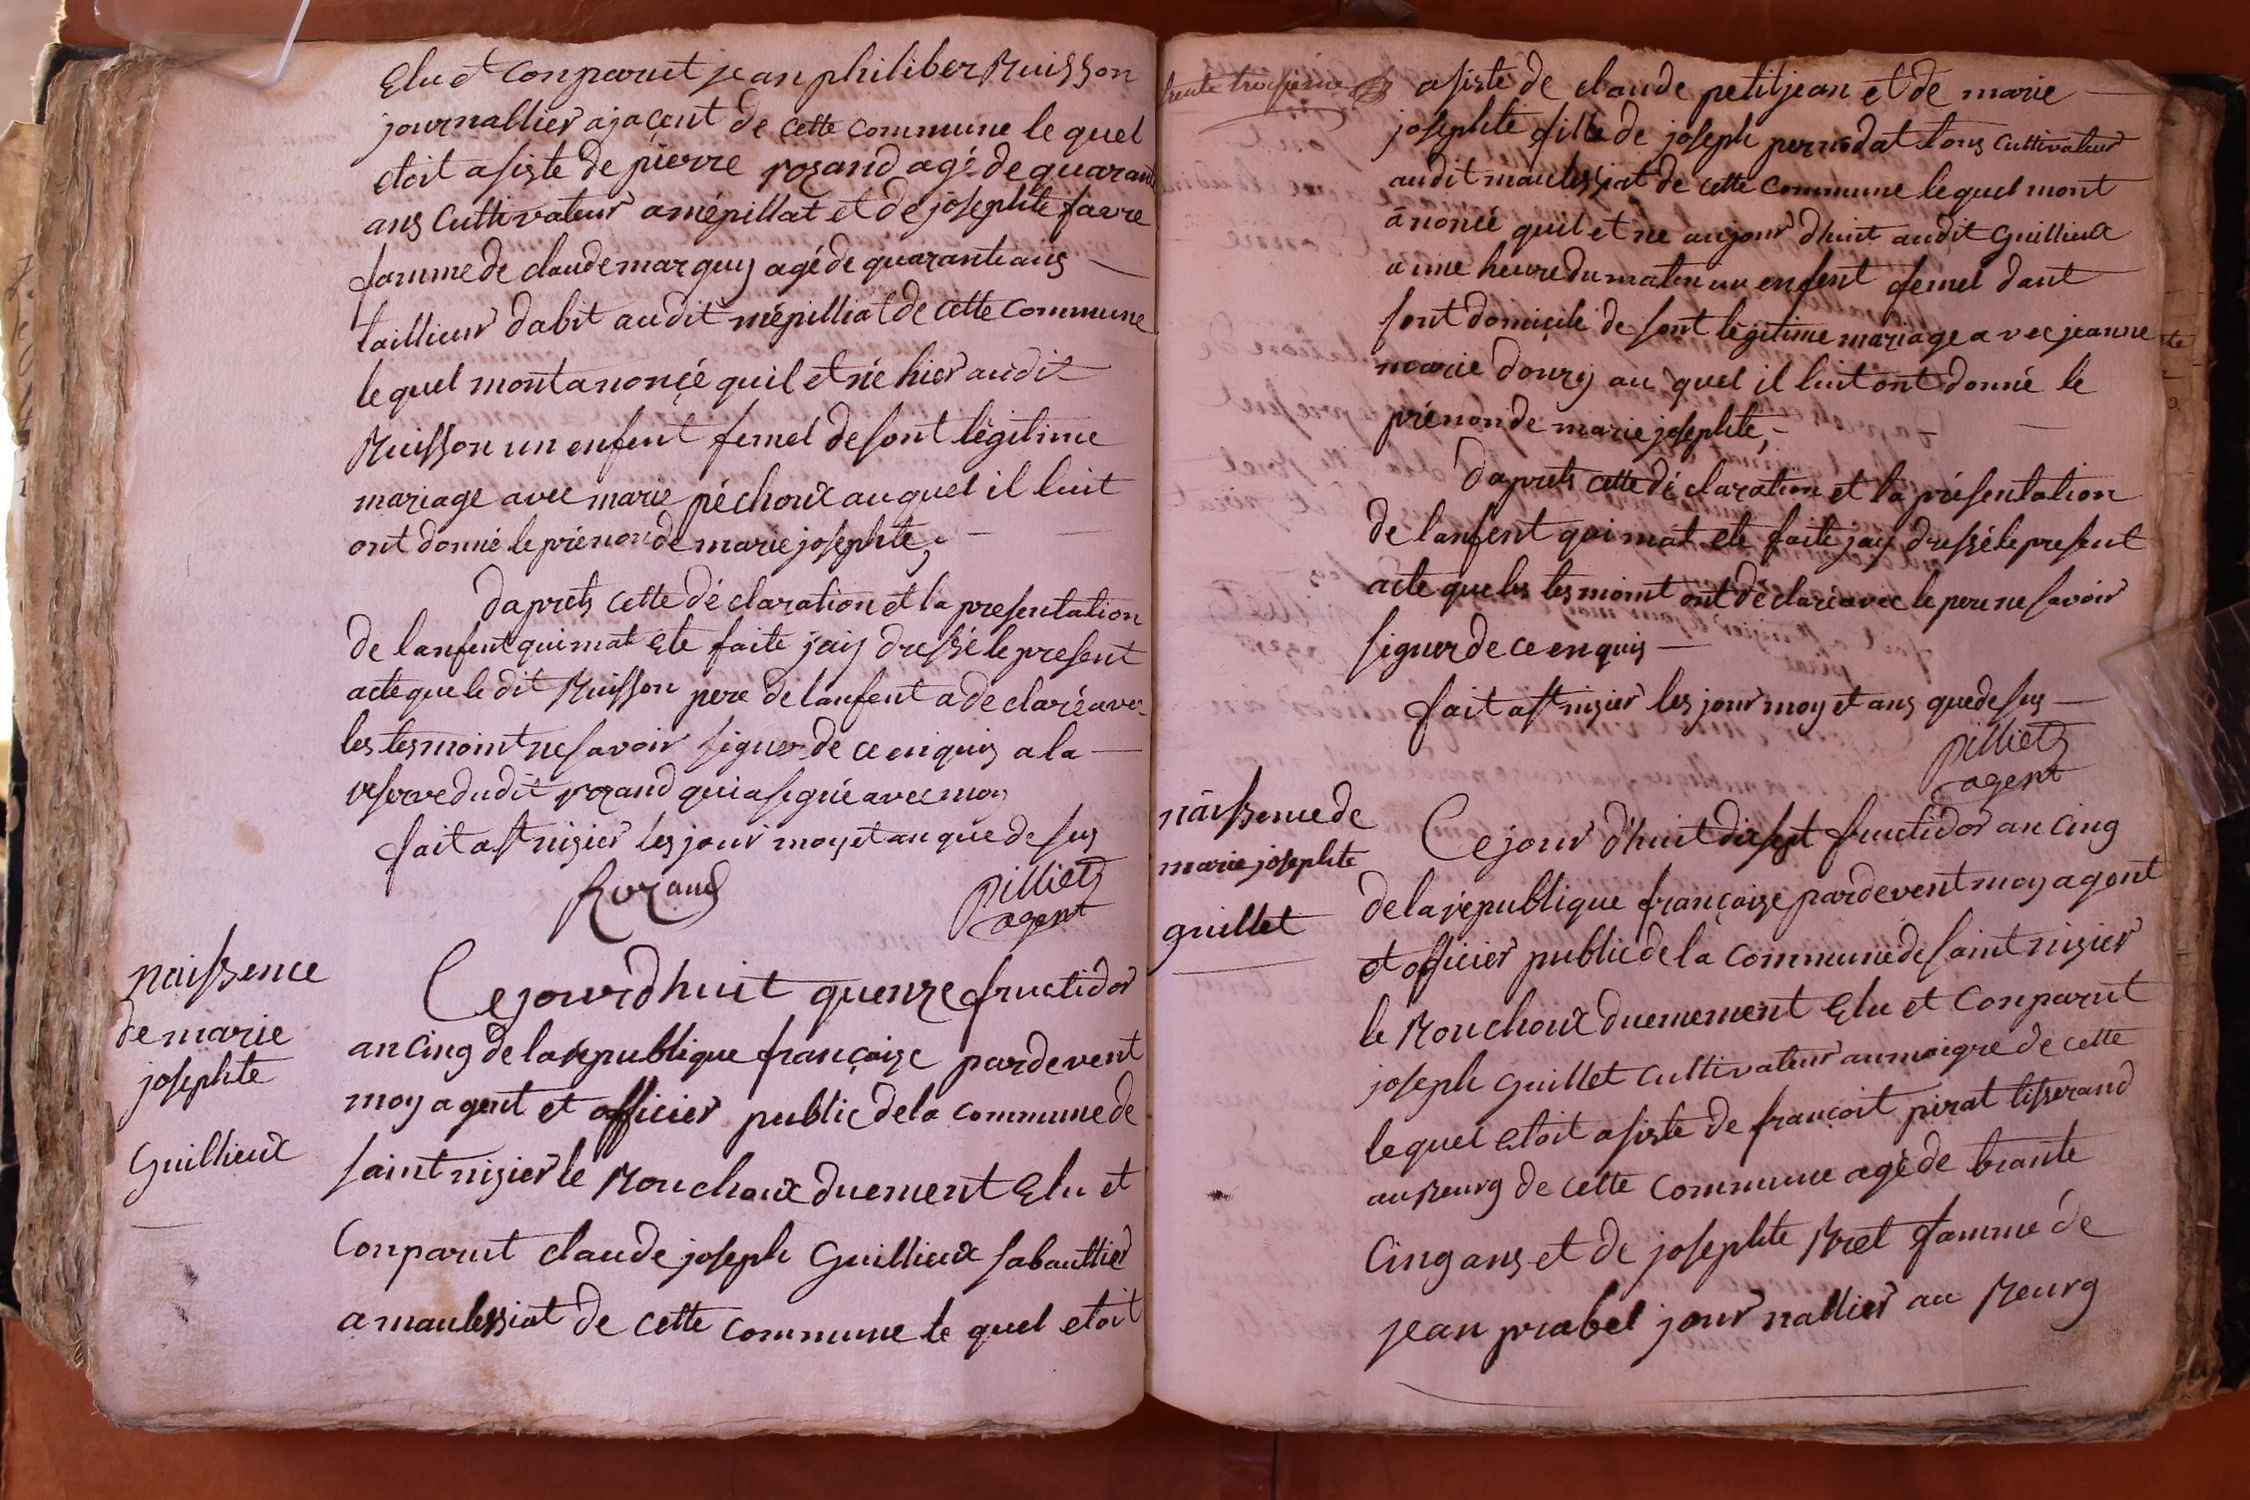 Elu et Conparut jean philiber Buisson
journallier ajaçent de cette commune le quel
etoit asiste de pierre rozand agé de quarante
ans Cultivateur amépillat et de josephte favre
famme de claude marquis agé de quarante ans
taillieur dabit audit mépilliat de cette commune
le quel mont anonçé quil et né hier audit
Buisson un enfent femel de sont légitime
mariage avec marie péchoux au quel il luit
ont donné le prénon de marie josephte,
Daprets cette déclaration et la presentation
de lanfent qui mat ete faite jaiy dressé le present
acte que le dit Buisson pere de lanfent a declaré avec
les tesmoint ne savoir signer de ce enquis a la
reserve dudit rozand qui a segné avec moy
fait a st nisier les jour moy et an que de sus
Rozand pilliet
agent
naissence
de marie
josephte
Guillieux
Ce jourdhuit quenze fructidor
an cinq de la republique françaize pardevent
moy agent et officier public de la commune de
saint nisier le Bouchoux duement Elu et
Conparut claude joseph Guillieux sabauttier
a maulessiat de cette commune le quel etoit
trente troisieme
asiste de claude petitjean et de marie
josephte fille de joseph pernodat tous cultivateur
audit maulessiat de cette commune lequel mont
anoncé quil et ne aujourdhuit audit Guillieux
a une heure du maten un enfent femel dant
sont domicile de sont légitime mariage avec jeanne
marie doury au quel il luit ont donné le
prénon de marie josephte,
Daprets cette déclaration et la présentation
de lanfent qui mat ete faite jaiy dressé le present
acte que les tesmoint ont déclaré avec le pere ne savoir
signer de ce enquis
fait a st nisier les jour moy et ans que de sus
pilliet
agent
naissence de
marie josephte
guillet
Ce jour dhuit disept fructidor an cinq
de la republique françaize pardevent moy agent
et officier public de la commune de saint nisier
le Bouchoux duemement Elu et Conparut
joseph Guillet cultivateur au maigre de cette
lequel etoit asiste de françoit pirat tisserand
au Beurg de cette commune agé de trante
cinq ans et de josephte Bret famme de
jean prabel journallier au Beurg